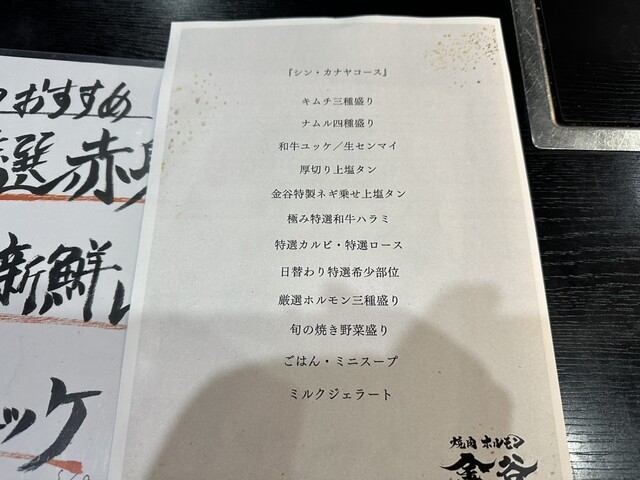 おすすめ
選 赤
新鮮
ッケ
『シン・カナヤコース』
キムチ三種盛り
ナムル四種盛り
和牛ユッケ／生センマイ
厚切り上塩タン
金谷特製ネギ乗せ上塩タン
極み特選和牛ハラミ
特選カルビ・特選ロース
日替わり特選希少部位
厳選ホルモン三種盛り
旬の焼き野菜盛り
ごはん・ミニスープ
ミルクジェラート
焼肉 ホルモン
金谷